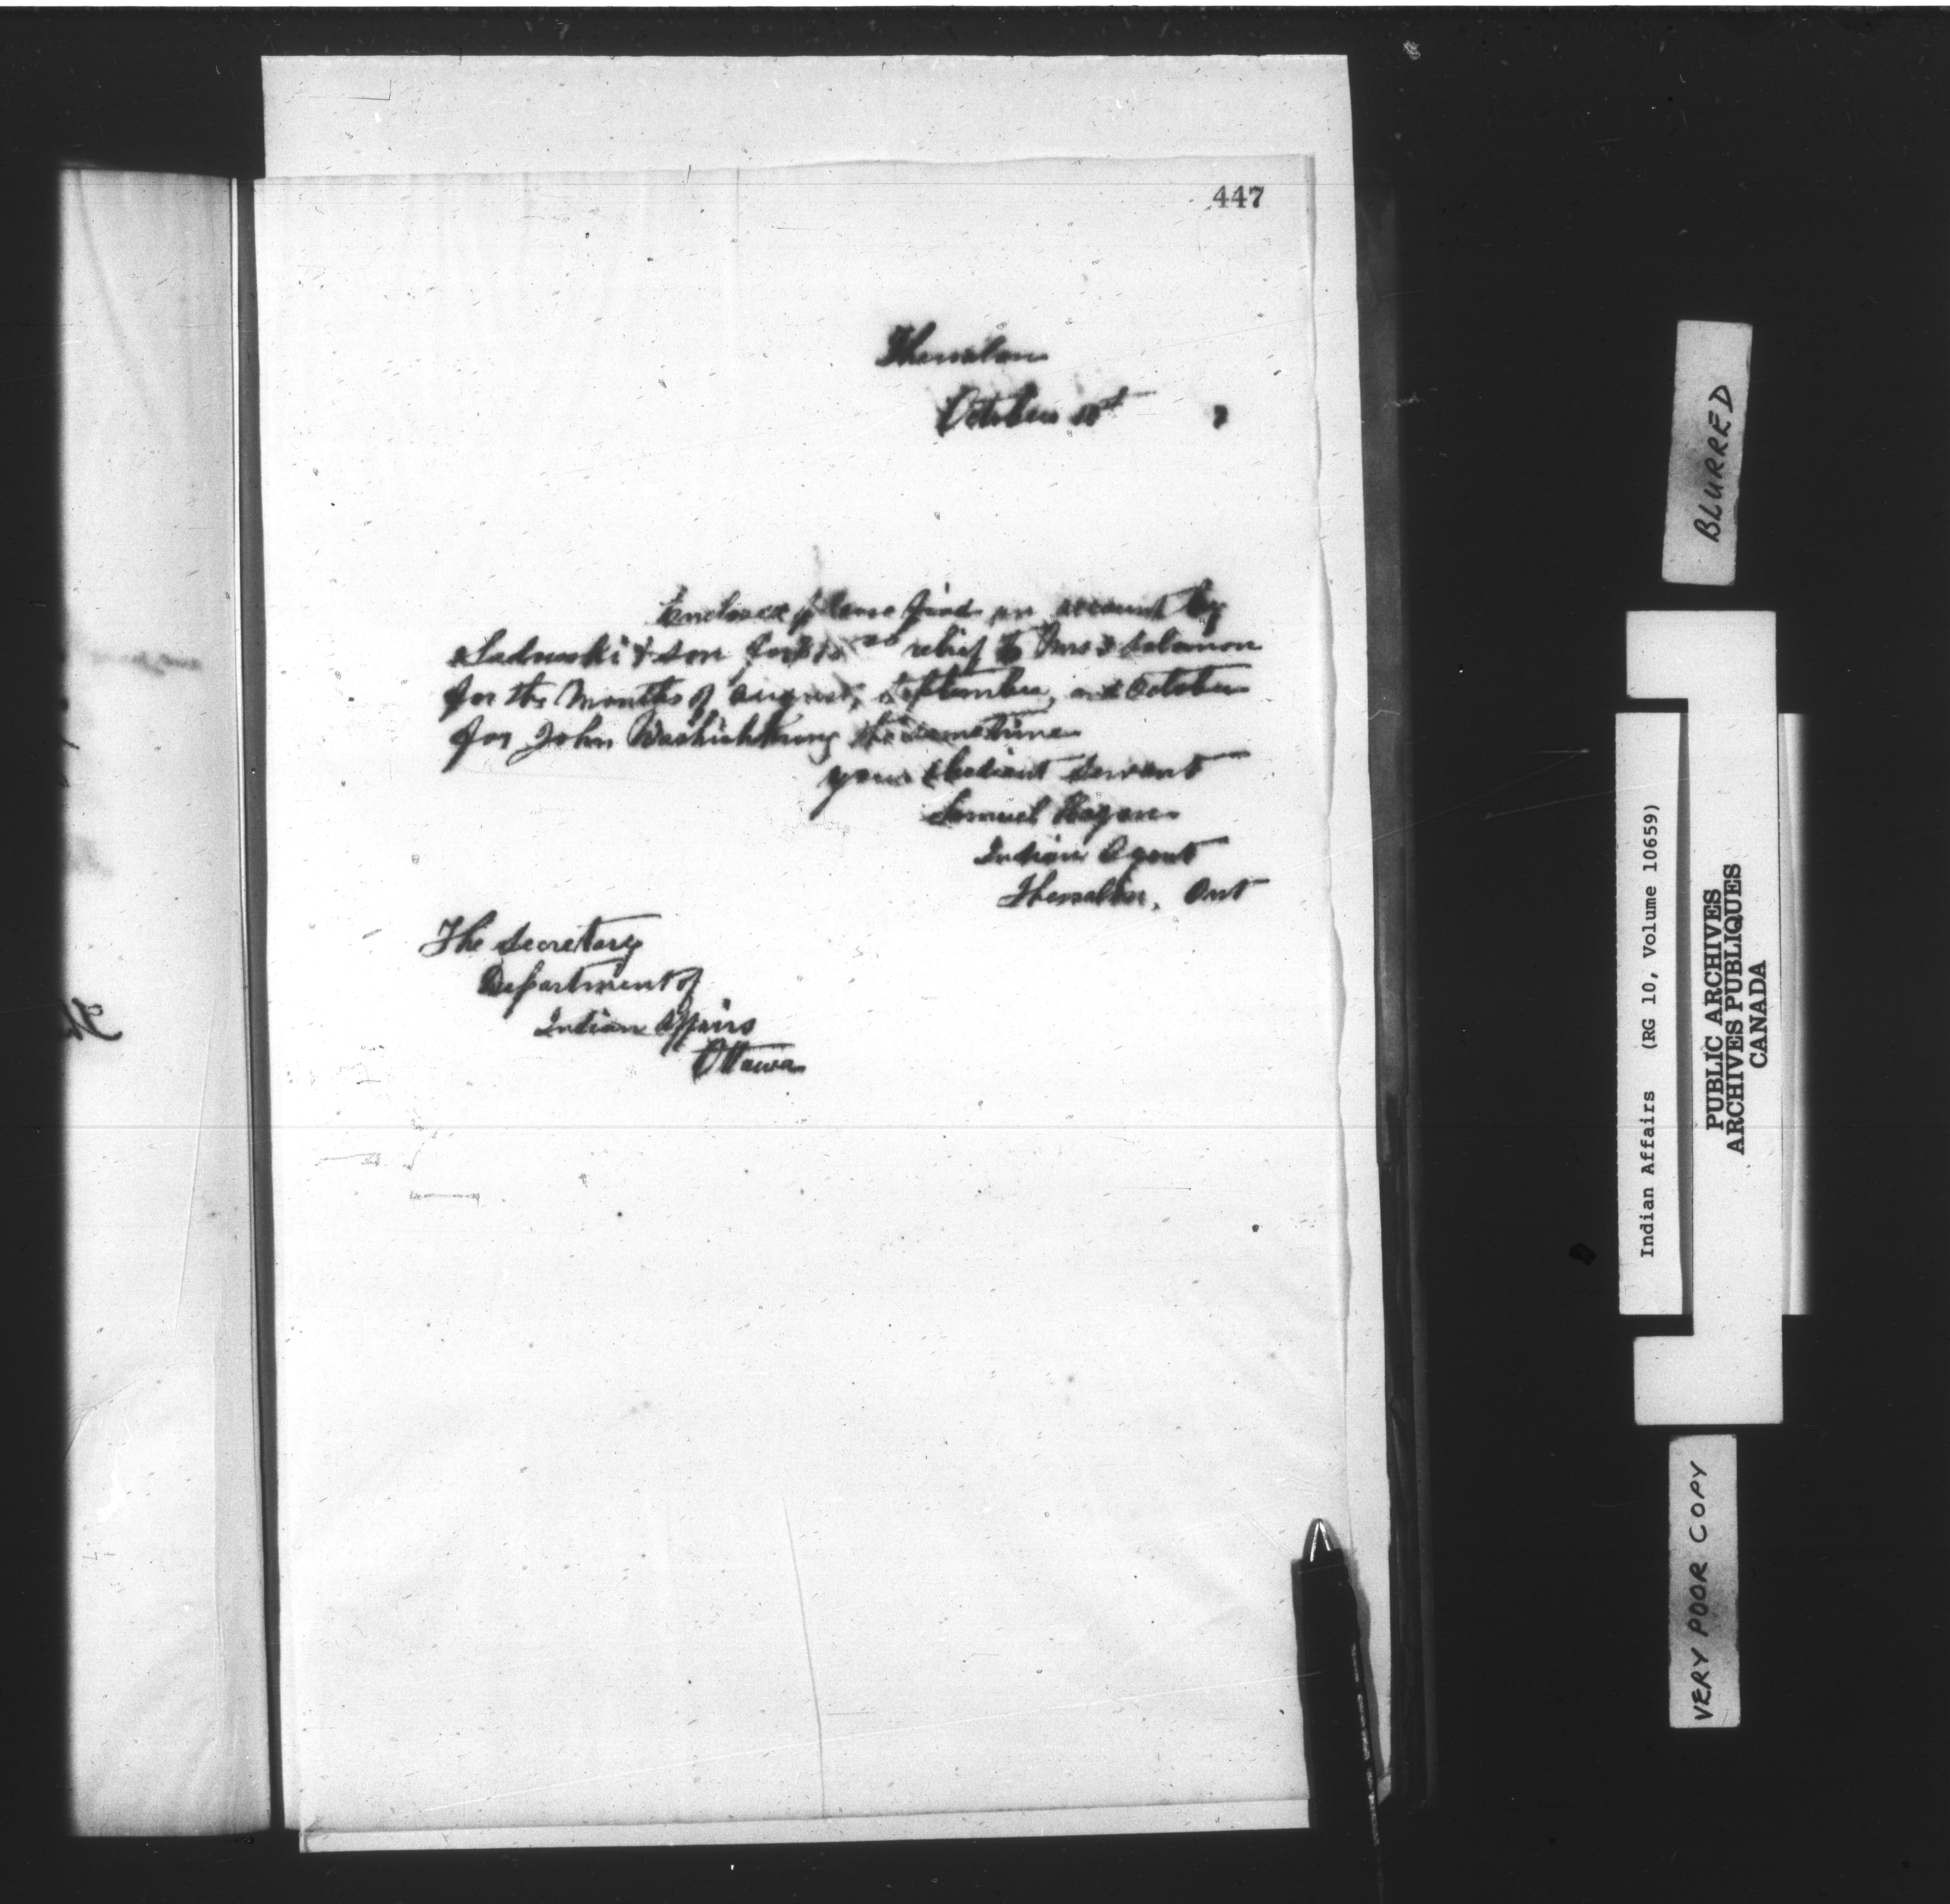 447
Thessalon
October
Enclosed please find an account by
Sadowski & Son for relief to Mrs Solomon
for the Months of August, September, and October
for John the same time
your obedient Servant
Samuel Hagan
Indian Agent
Thessalon, Ont
The Secretary
Department of
Indian Affairs
Ottawa
BLURRED
Indian Affairs (RG 10, Volume 10659)
PUBLIC ARCHIVES
ARCHIVES PUBLIQUES
CANADA
VERY POOR COPY